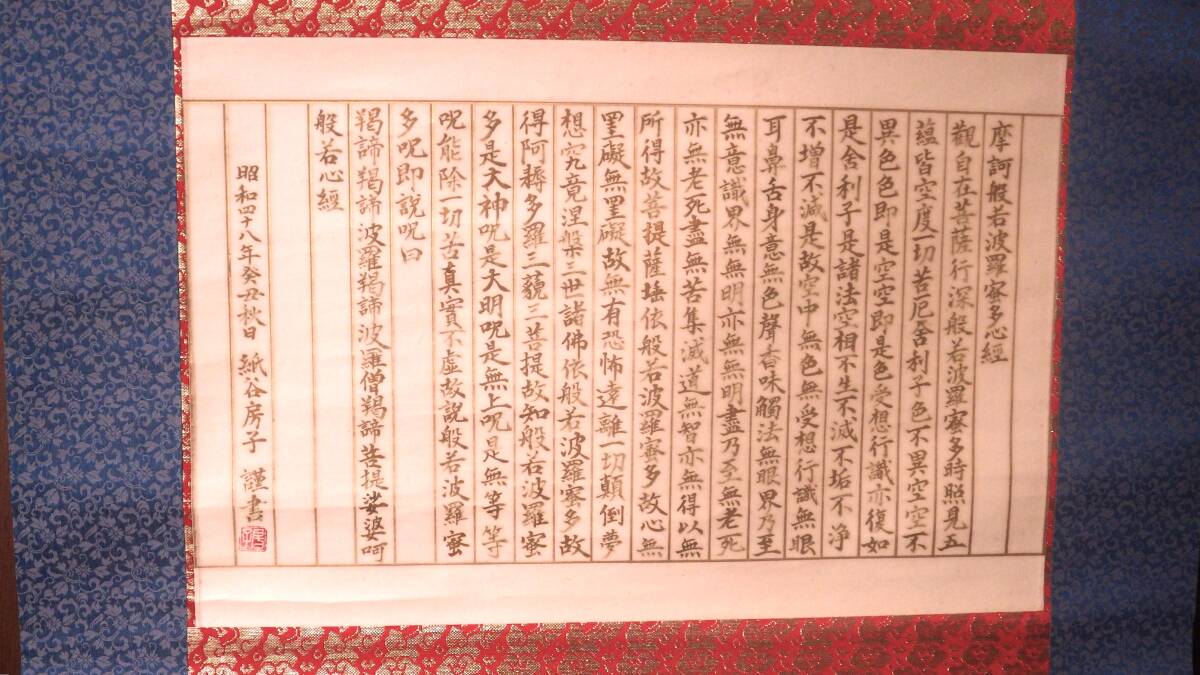 摩訶般若波羅蜜多心經
觀自在菩薩行深般若波羅蜜多時照見五
蘊皆空度一切苦厄舍利子色不異空空不
異色色即是空空即是色受想行識亦復如
是舍利子是諸法空相不生不滅不垢不净
不增不減是故空中無色無受想行識無眼
耳鼻舌身意無色聲香味觸法無眼界乃至
無意識界無無明亦無無明盡乃至無老死
亦無老死盡無苦集滅道無智亦無得以無
所得故菩提薩埵依般若波羅蜜多故心無
罣礙無罣礙故無有恐怖遠離一切顛倒夢
想究竟涅槃三世諸佛依般若波羅蜜多故
得阿耨多羅三藐三菩提故知般若波羅蜜
多是大神呪是大明呪是無上呪是無等等
呪能除一切苦真實不虛故說般若波羅蜜
多呪即說呪曰
羯諦羯諦波羅羯諦波羅僧羯諦菩提娑婆呵
般若心經
昭和四十八年癸丑秋日 紙谷房子 謹書